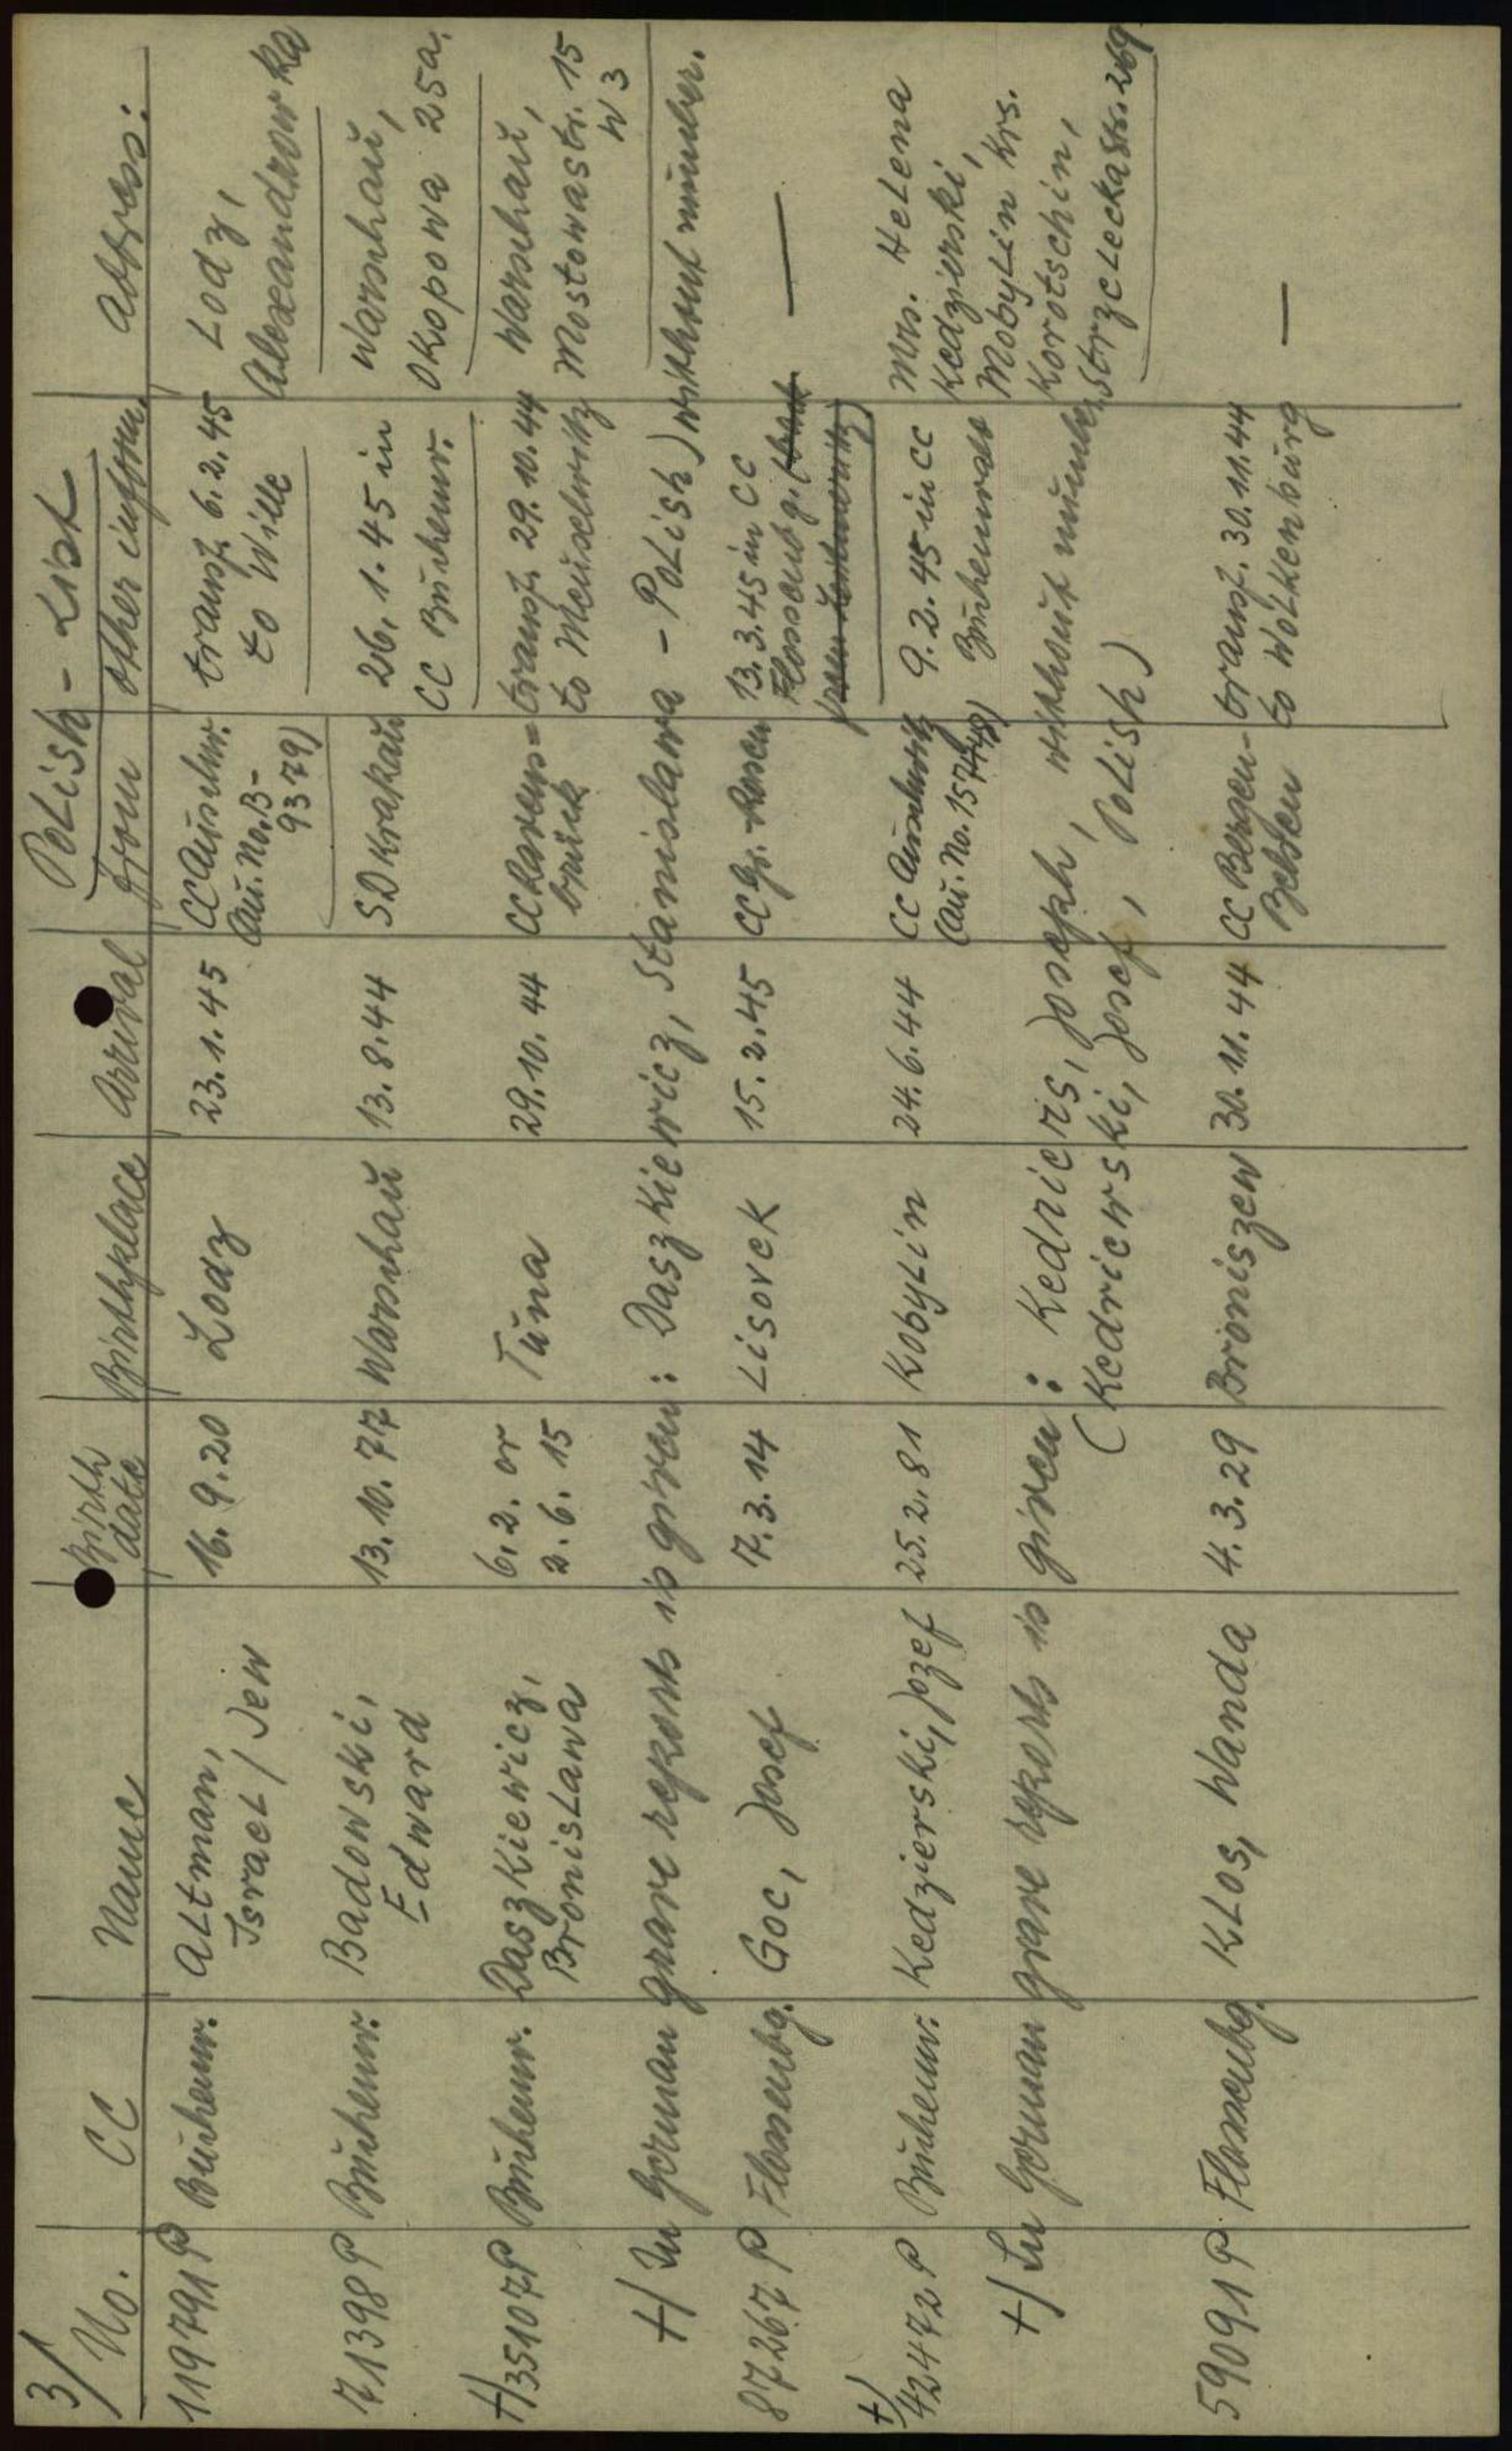 3/1 Polish - List
No. CC Name Birth date Birthplace Arrival from other inform. Address:
119791 P Buchenw. Altman, 16.9.20 Lodz 23.1.45 CC Auschw. transf. 6.2.45 Lodz,
Israel / Jew (Au. No. B- to Wille Alexandrowska
9379)
71398 P Buchenw. Badowski, 13.10.77 Warschau 13.8.44 SD Krakau 26.1.45 in Warschau,
Edward CC Buchenw. Okopowa 25a.
+/35107P Buchenw. Daszkiewicz, 6.2. or Tuna 29.10.44 CC Ravens= transf. 29.10.44 Warschau,
Bronislawa 2.6.15 brück to Meuselwitz Mostowastr. 15
W 3
+/ In German grave reports is given: Daszkiewicz, Stanislawa - Polish) without number.
87267 P Flossenbg. Goc, Josef 7.3.14 Lisovek 15.2.45 CC Gr.-Rosen 13.3.45 in CC —
Flossenbg.
+/
42472 P Buchenw. Kedzierski, Jozef 25.2.81 Kobylin 24.6.44 CC Auschwitz 9.2.45 in CC Mrs. Helena
(Au. No. 157448) Buchenwald Kedzierski,
Mobylin Krs.
Korotschin,
Strzeleckastr. 269
+/ In German grave reports is given: Kedriers, Joseph, without number
(Kedriewski, Josef, Polish)
59091 P Flossenbg. Klos, Wanda 4.3.29 Broniszew 30.11.44 CC Bergen- transf. 30.11.44 —
Belsen to Wolkenburg